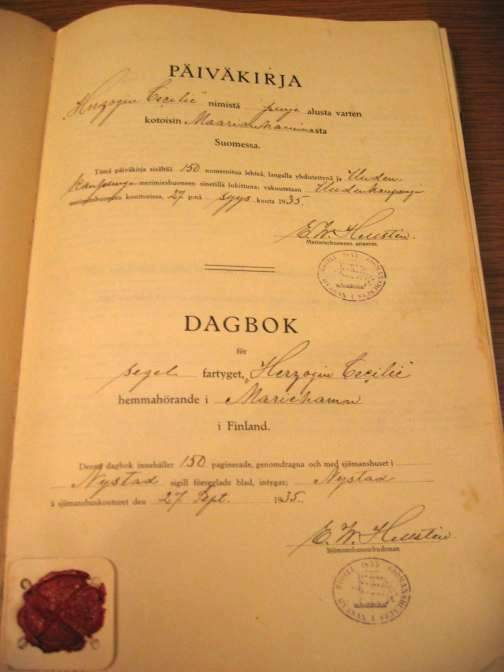 PÄIVÄKIRJA
Herzogin Cecilie nimistä purje alusta varten
kotoisin Maarianhaminasta
Suomessa.
Tämä päiväkirja sisältää 150 numeroitua lehteä, langalla yhdistettynä ja Uuden
kaupungin merimieshuoneen sinetillä lukittuna; vakuutetaan Uudenkaupungin
konttorissa, 27 p:nä syys kuuta 1935.
E. W. Hellstén.
Merimieshuoneen asiamies.
DAGBOK
för
segel fartyget, „Herzogin Cecilie
hemmahörande i Mariehamn
i Finland.
Denna dagbok innehåller 150 paginerade, genomdragna och med sjömanshuset i
Nystad sigill förseglade blad, intygar; Nystad
å sjömanshuskontoret den 27 Sept. 1935.
E. W. Hellstén
Sjömanshusombudsman.